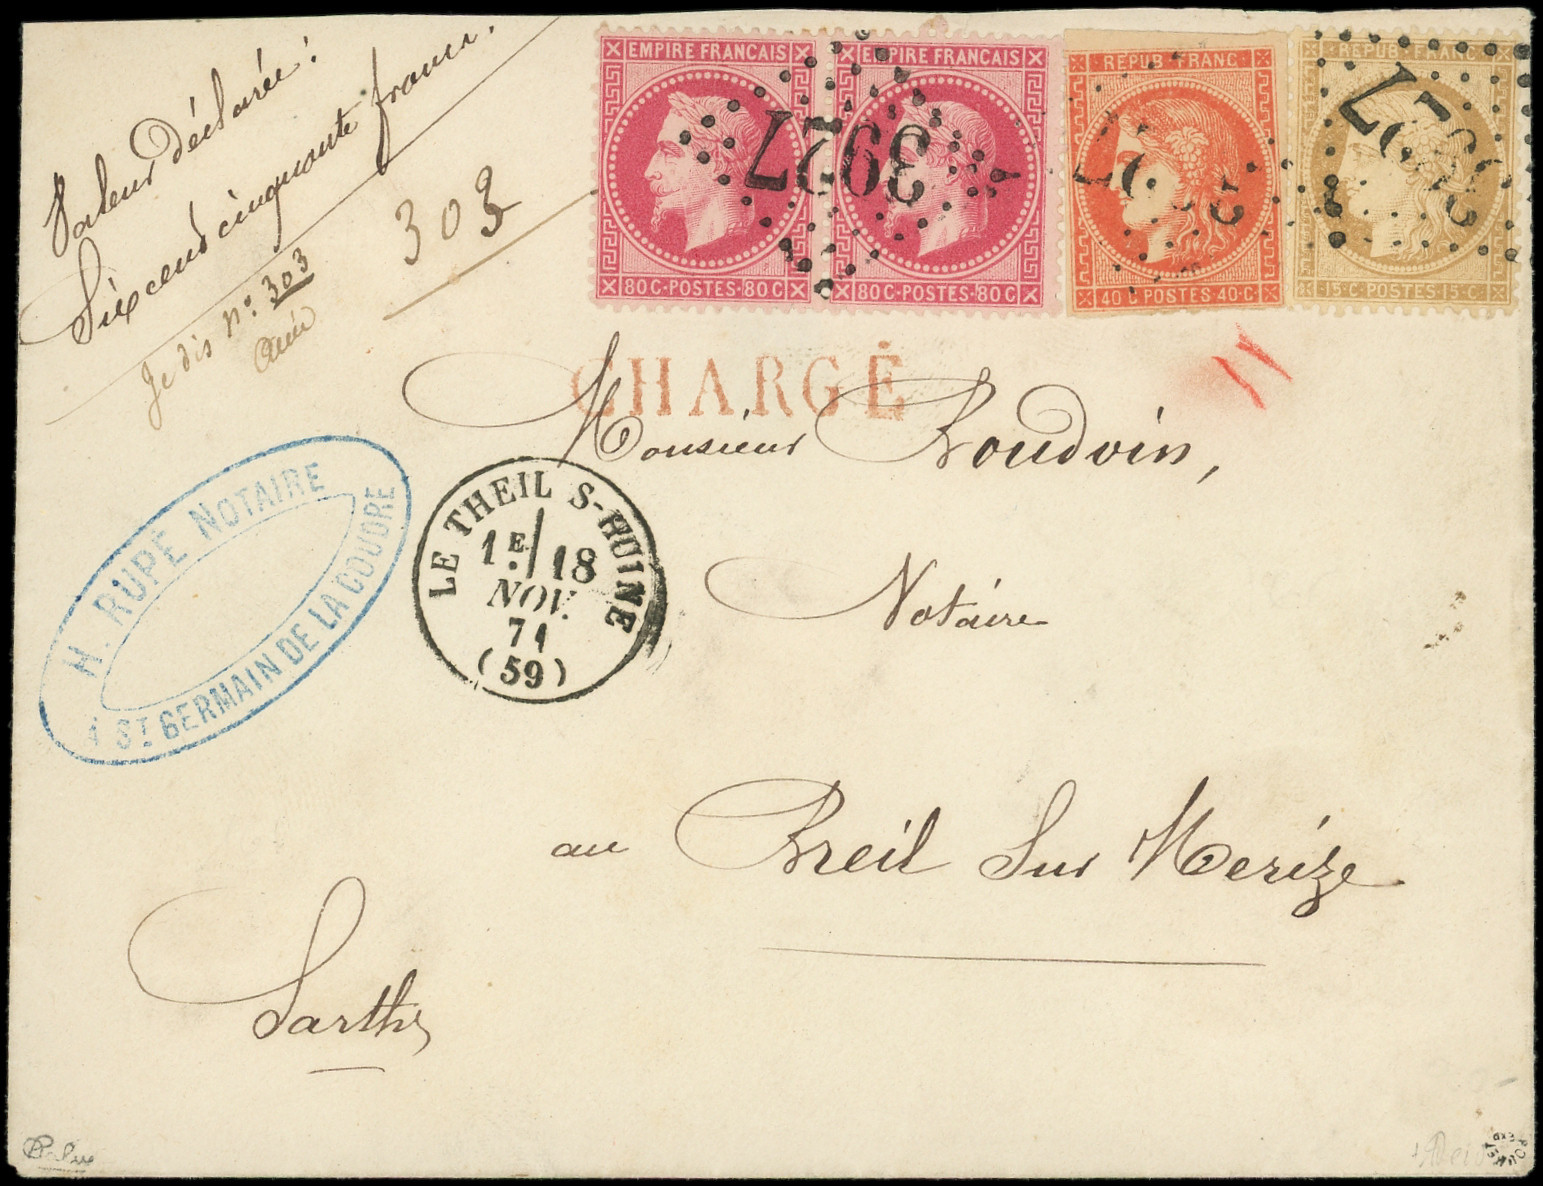 Valeur déclarée:
Six cent cinquante francs.
Je dis n° 303
303
EMPIRE FRANCAIS
80C·POSTES·80C
EMPIRE FRANCAIS
80C·POSTES·80C
3927
REPUB·FRANC
40·C·POSTES·40·C
27
REPUB·FRANC
15·C·POSTES·15·C
3927
CHARGÉ
Monsieur Boudvin,
Notaire
au Breil Sur Merize
Sarthe
H. RUPE NOTAIRE
A ST GERMAIN DE LA COUDRE
LE THEIL S-HUINE
1E/18
NOV.
71
(59)